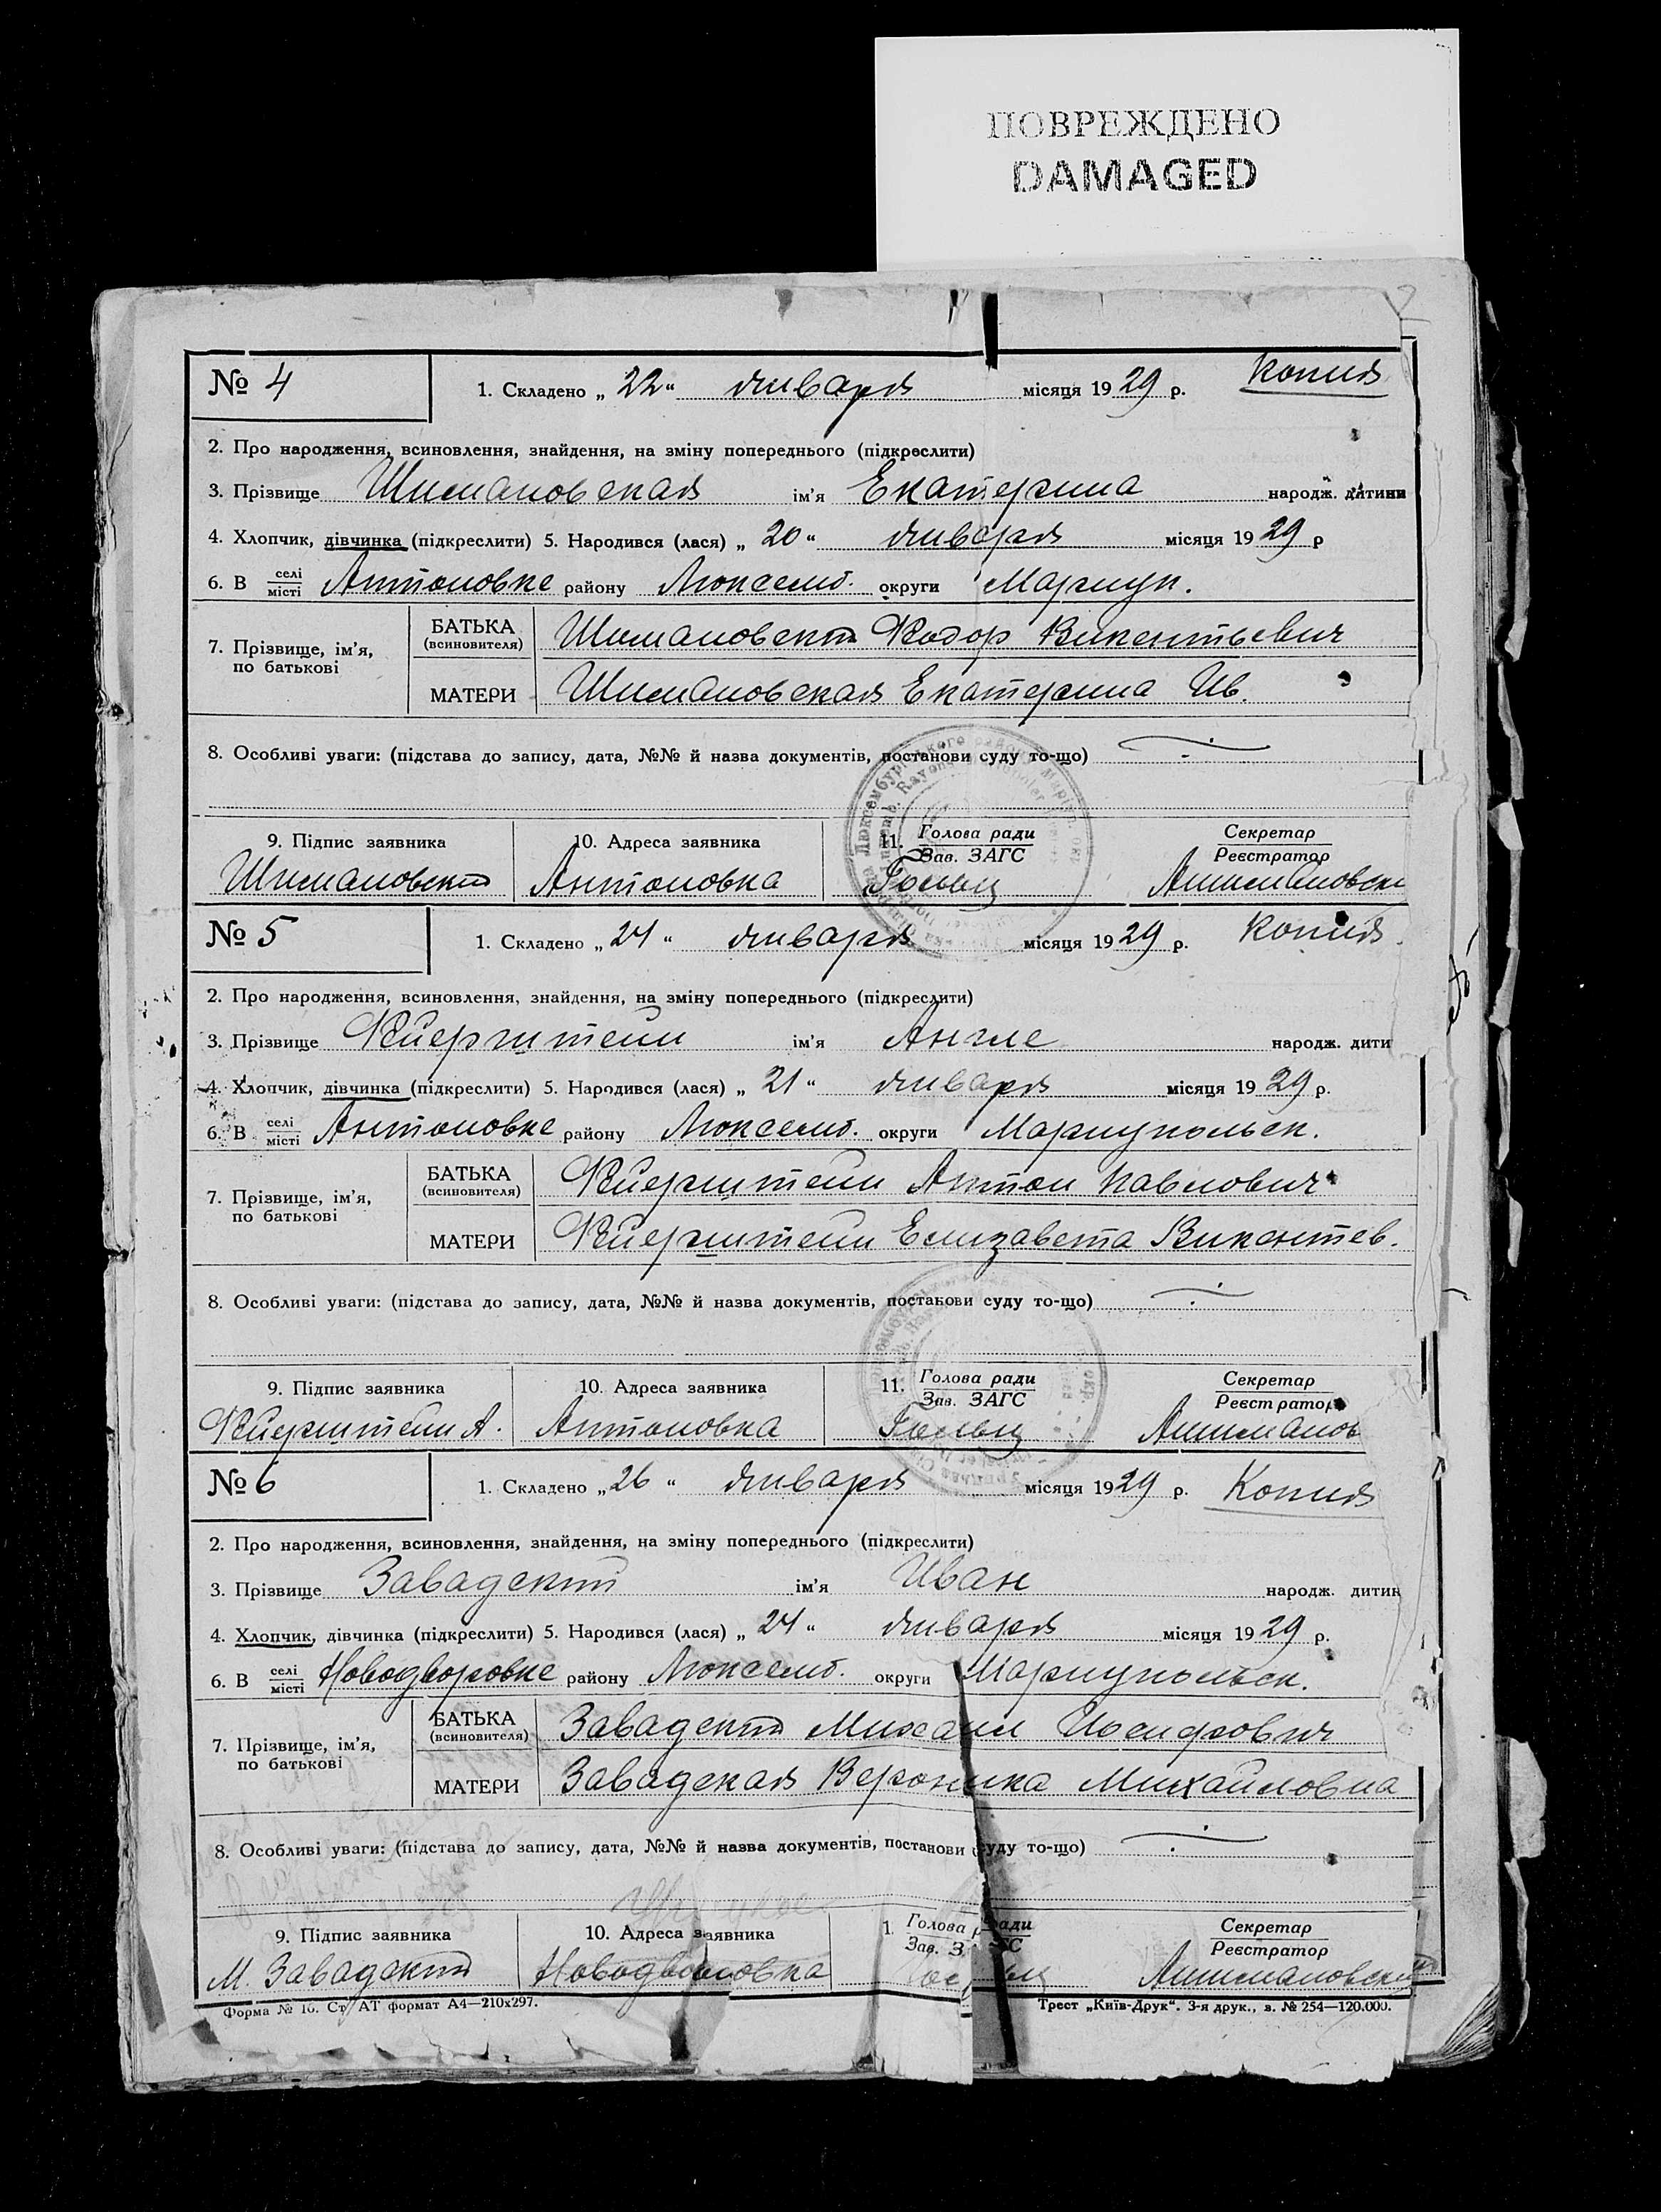 ПОВРЕЖДЕНО
DAMAGED
№ 4 1. Складено „ 22 “ января місяця 19 29 р. Копия
2. Про народження, всиновлення, знайдення, на зміну попереднього (підкреслити)
3. Прізвище Шимановская ім'я Екатерина народж. дитини
4. Хлопчик, дівчинка (підкреслити) 5. Народився (лася) „ 20 “ января місяця 19 29 р
6. В селі місті Антоновке району Люксемб. округи Мариуп.
7. Прізвище, ім'я, по батькові БАТЬКА (всиновителя) Шимановский Фодор Викентьевич
МАТЕРИ Шимановская Екатерина Ив.
8. Особливі уваги: (підстава до запису, дата, №№ й назва документів, постанови суду то-що)
9. Підпис заявника 10. Адреса заявника 11. Голова ради Зав. ЗАГС Секретар Реєстратор
Шимановский Антоновка
№ 5 1. Складено „ 24 “ января місяця 19 29 р. Копия
2. Про народження, всиновлення, знайдення, на зміну попереднього (підкреслити)
3. Прізвище Фйерштейн ім'я Англе народж. дити
4. Хлопчик, дівчинка (підкреслити) 5. Народився (лася) „ 21 “ января місяця 19 29 р.
6. В селі місті Антоновке району Люксемб. округи Мариупольск.
7. Прізвище, ім'я, по батькові БАТЬКА (всиновителя) Фйерштейн Антон Павлович
МАТЕРИ Фйерштейн Елизавета Викентев.
8. Особливі уваги: (підстава до запису, дата, №№ й назва документів, постанови суду то-що)
9. Підпис заявника 10. Адреса заявника 11. Голова ради Зав. ЗАГС Секретар Реєстратор
Фйерштейн А. Антоновка
№ 6 1. Складено „ 26 “ января місяця 19 29 р. Копия
2. Про народження, всиновлення, знайдення, на зміну попереднього (підкреслити)
3. Прізвище Завадский ім'я Иван народж. дитин
4. Хлопчик, дівчинка (підкреслити) 5. Народився (лася) „ 24 “ января місяця 19 29 р.
6. В селі місті Новодворовке району Люксемб. округи Мариупольск.
7. Прізвище, ім'я, по батькові БАТЬКА (всиновителя) Завадский Михаил Иосифович
МАТЕРИ Завадская Вероника Михайловна
8. Особливі уваги: (підстава до запису, дата, №№ й назва документів, постанови суду то-що)
9. Підпис заявника 10. Адреса заявника 1. Голова ради Зав. З ГС Секретар Реєстратор
М. Завадский Новодворовка
Форма № 16. Ст АТ формат А4—210х297. Трест „Київ-Друк“. 3-я друк., з. № 254—120.000.